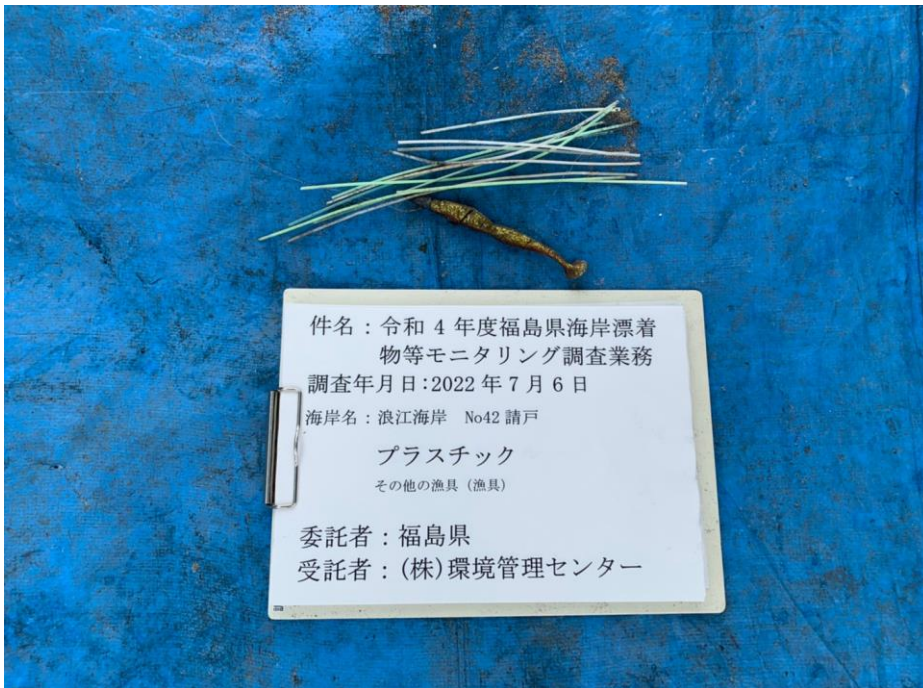 件名：令和 4 年度福島県海岸漂着
物等モニタリング調査業務
調査年月日：2022 年 7 月 6 日
海岸名：浪江海岸　No42 請戸
プラスチック
その他の漁具（漁具）
委託者：福島県
受託者：(株)環境管理センター